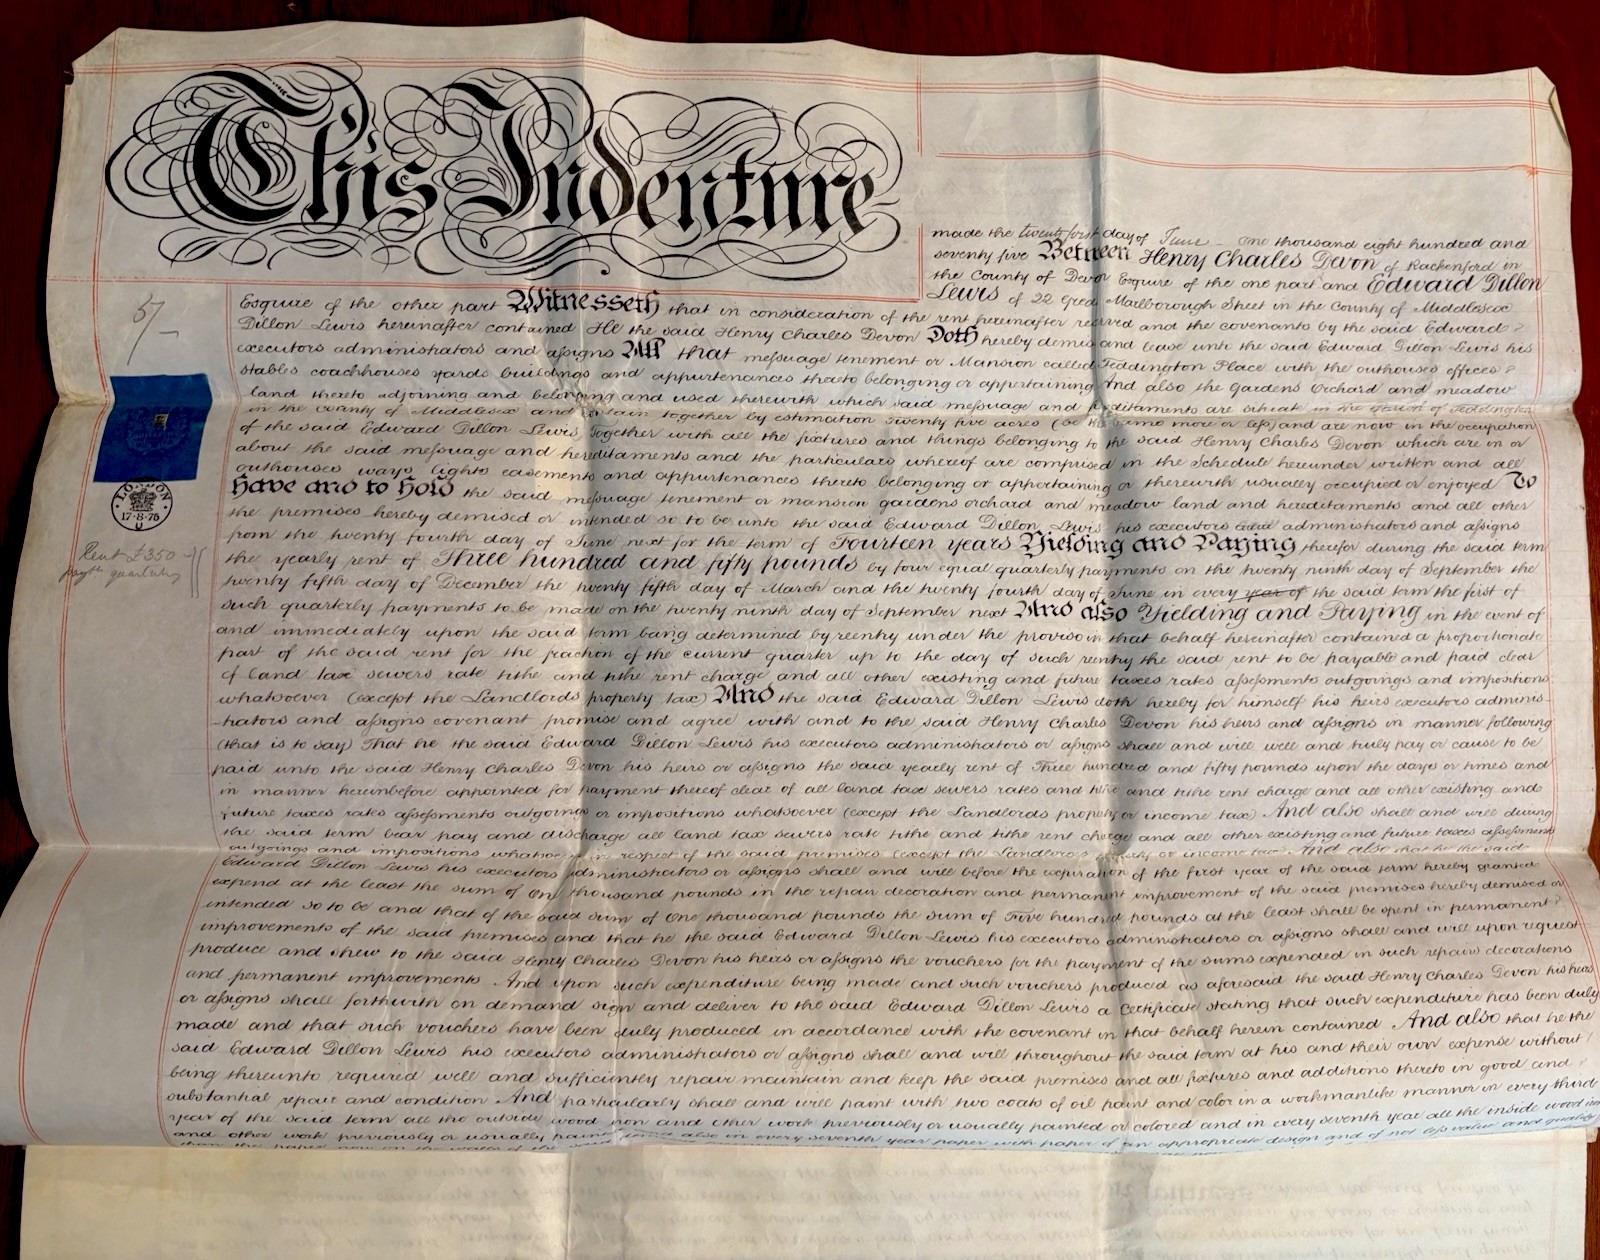 This Indenture
made the twenty first day of June one thousand eight hundred and
seventy five Between Henry Charles Devon of Rackenford in
the County of Devon Esquire of the one part and Edward Dillon
Lewis of 22 Great Marlborough Street in the County of Middlesex
Esquire of the other part Witnesseth that in consideration of the rent hereinafter reserved and the covenants by the said Edward
Dillon Lewis hereinafter contained He the said Henry Charles Devon Doth hereby demise and lease unto the said Edward Dillon Lewis his
executors administrators and assigns All that messuage tenement or Mansion called Teddington Place with the outhouses offices
stables coachhouses yards buildings and appurtenances thereto belonging or appertaining And also the Gardens Orchard and meadow
land thereto adjoining and belonging and used therewith which said messuage and hereditaments are situate in the Parish of Teddington
in the County of Middlesex and contain together by estimation Twenty five acres (be the same more or less) and are now in the occupation
of the said Edward Dillon Lewis Together with all the fixtures and things belonging to the said Henry Charles Devon which are in or
about the said messuage and hereditaments and the particulars whereof are comprised in the Schedule hereunder written and all
outhouses ways lights easements and appurtenances thereto belonging or appertaining or therewith usually occupied or enjoyed To
Have and to Hold the said messuage tenement or mansion gardens orchard and meadow land and hereditaments and all other
the premises hereby demised or intended so to be unto the said Edward Dillon Lewis his executors administrators and assigns
from the twenty fourth day of June next for the term of Fourteen years Yielding and Paying therefor during the said term
the yearly rent of Three hundred and fifty pounds by four equal quarterly payments on the twenty ninth day of September the
twenty fifth day of December the twenty fifth day of March and the twenty fourth day of June in every year of the said term the first of
such quarterly payments to be made on the twenty ninth day of September next And also Yielding and Paying in the event of
and immediately upon the said term being determined by reentry under the proviso in that behalf hereinafter contained a proportionate
part of the said rent for the fraction of the current quarter up to the day of such reentry the said rent to be payable and paid clear
of land tax sewers rate tithe and tithe rent charge and all other existing and future taxes rates assessments outgoings and impositions
whatsoever (except the Landlords property tax) And the said Edward Dillon Lewis doth hereby for himself his heirs executors adminis
-trators and assigns covenant promise and agree with and to the said Henry Charles Devon his heirs and assigns in manner following
(that is to say) That he the said Edward Dillon Lewis his executors administrators or assigns shall and will well and truly pay or cause to be
paid unto the said Henry Charles Devon his heirs or assigns the said yearly rent of Three hundred and fifty pounds upon the days or times and
in manner hereinbefore appointed for payment thereof clear of all land tax sewers rates and tithe and tithe rent charge and all other existing and
future taxes rates assessments outgoings or impositions whatsoever (except the Landlords property or income tax) And also shall and will during
the said term bear pay and discharge all land tax sewers rate tithe and tithe rent charge and all other existing and future taxes assessments
outgoings and impositions whatsoever in respect of the said premises (except the Landlords property or income tax) And also that he the said
Edward Dillon Lewis his executors administrators or assigns shall and will before the expiration of the first year of the said term hereby granted
expend at the least the sum of One thousand pounds in the repair decoration and permanent improvement of the said premises hereby demised or
intended so to be and that of the said sum of One thousand pounds the sum of Five hundred pounds at the least shall be spent in permanent
improvements of the said premises and that he the said Edward Dillon Lewis his executors administrators or assigns shall and will upon request
produce and shew to the said Henry Charles Devon his heirs or assigns the vouchers for the payment of the sums expended in such repairs decorations
and permanent improvements And upon such expenditure being made and such vouchers produced as aforesaid the said Henry Charles Devon his heirs
or assigns shall forthwith on demand sign and deliver to the said Edward Dillon Lewis a Certificate stating that such expenditure has been duly
made and that such vouchers have been duly produced in accordance with the covenant in that behalf herein contained And also that he the
said Edward Dillon Lewis his executors administrators or assigns shall and will throughout the said term at his and their own expense without
being thereunto required well and sufficiently repair maintain and keep the said premises and all fixtures and additions thereto in good and
substantial repair and condition And particularly shall and will paint with two coats of oil paint and color in a workmanlike manner in every third
year of the said term all the outside wood iron and other work previously or usually painted or colored and in every seventh year all the inside wood iron
and other work previously or usually painted and also in every seventh year paper with paper of an appropriate design and of not less value and quality
than the paper now on the walls of the
5/-
LONDON
17·8·75
Rent £350
payable quarterly